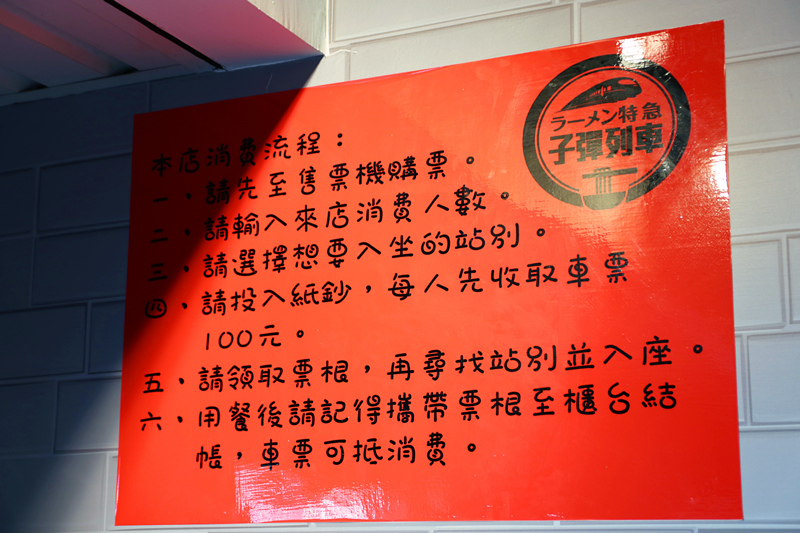 ラーメン特急
子彈列車
本店消費流程：
一、請先至售票機購票。
二、請輸入來店消費人數。
三、請選擇想要入坐的站別。
四、請投入紙鈔，每人先收取車票
100元。
五、請領取票根，再尋找站別並入座。
六、用餐後請記得攜帶票根至櫃台結
帳，車票可抵消費。